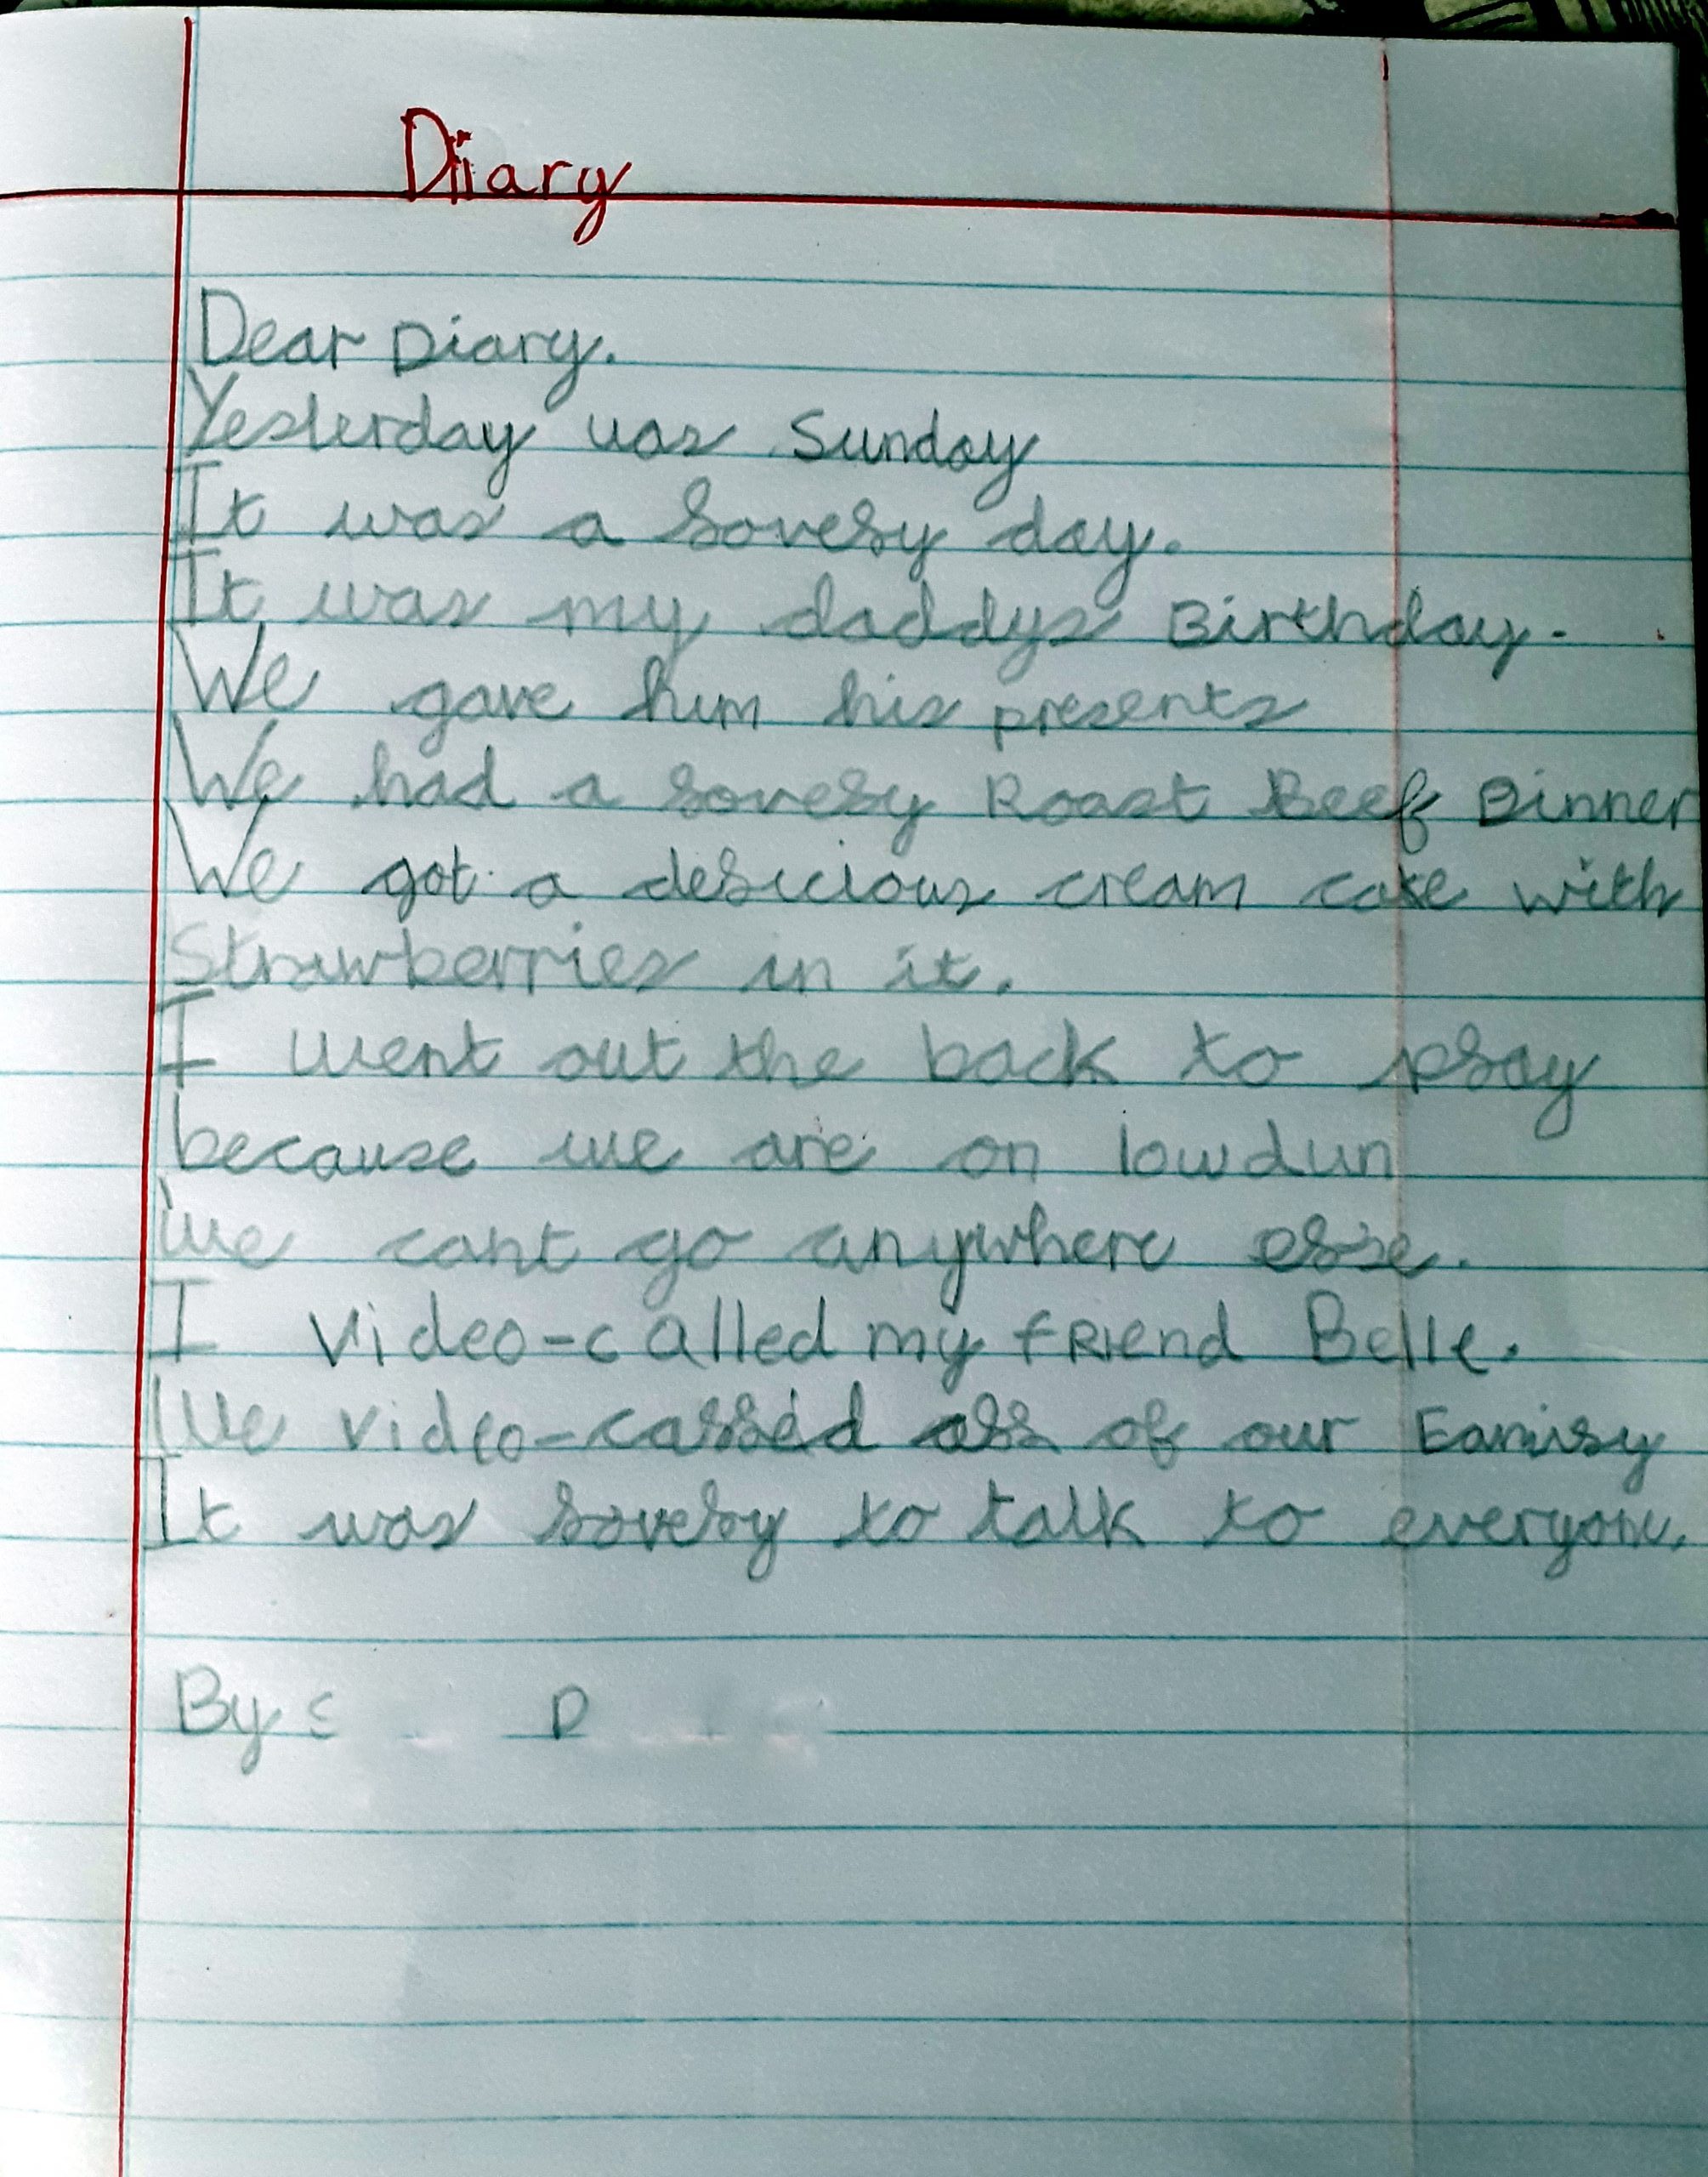 Diary
Dear Diary.
Yesterday was Sunday
It was a lovely day.
It was my daddys Birthday.
We gave him his presents
We had a lovely Roast Beef Dinner
We got a delicious cream cake with
Strawberries in it.
I went out the back to play
because we are on lowdun
we cant go anywhere else.
I video-called my friend Belle.
We video-called all of our Family
It was lovely to talk to everyone.
By